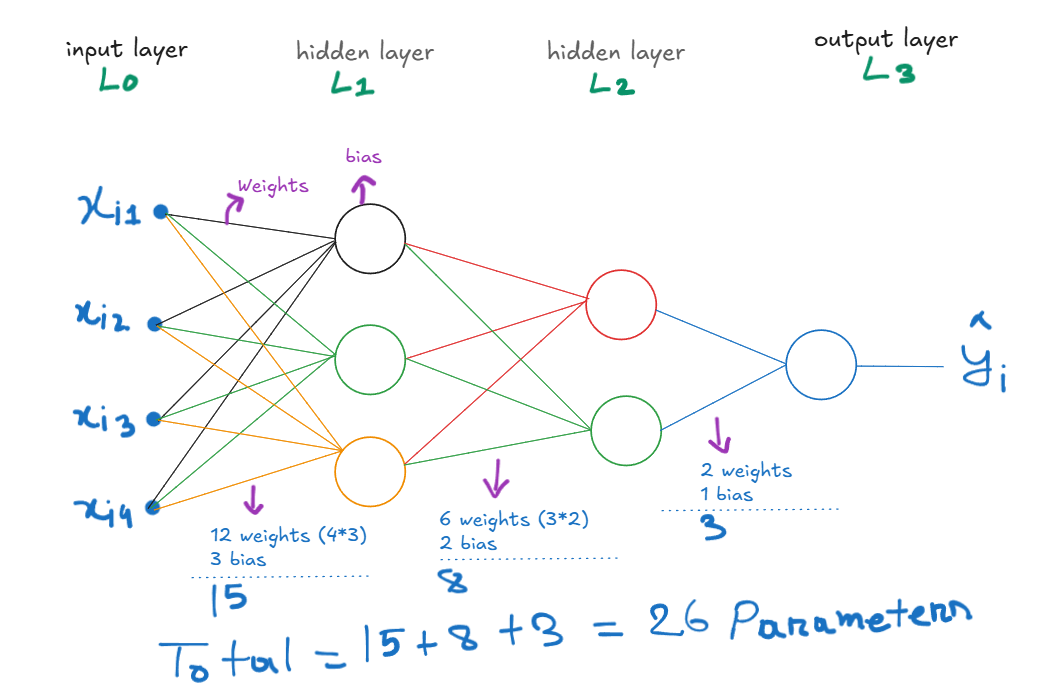 input layer
hidden layer
hidden layer
output layer
L0
L1
L2
L3
bias
Weights
xi1
xi2
xi3
xi4
ŷi
12 weights (4*3)
3 bias
15
6 weights (3*2)
2 bias
8
2 weights
1 bias
3
Total = 15 + 8 + 3 = 26 Parameters